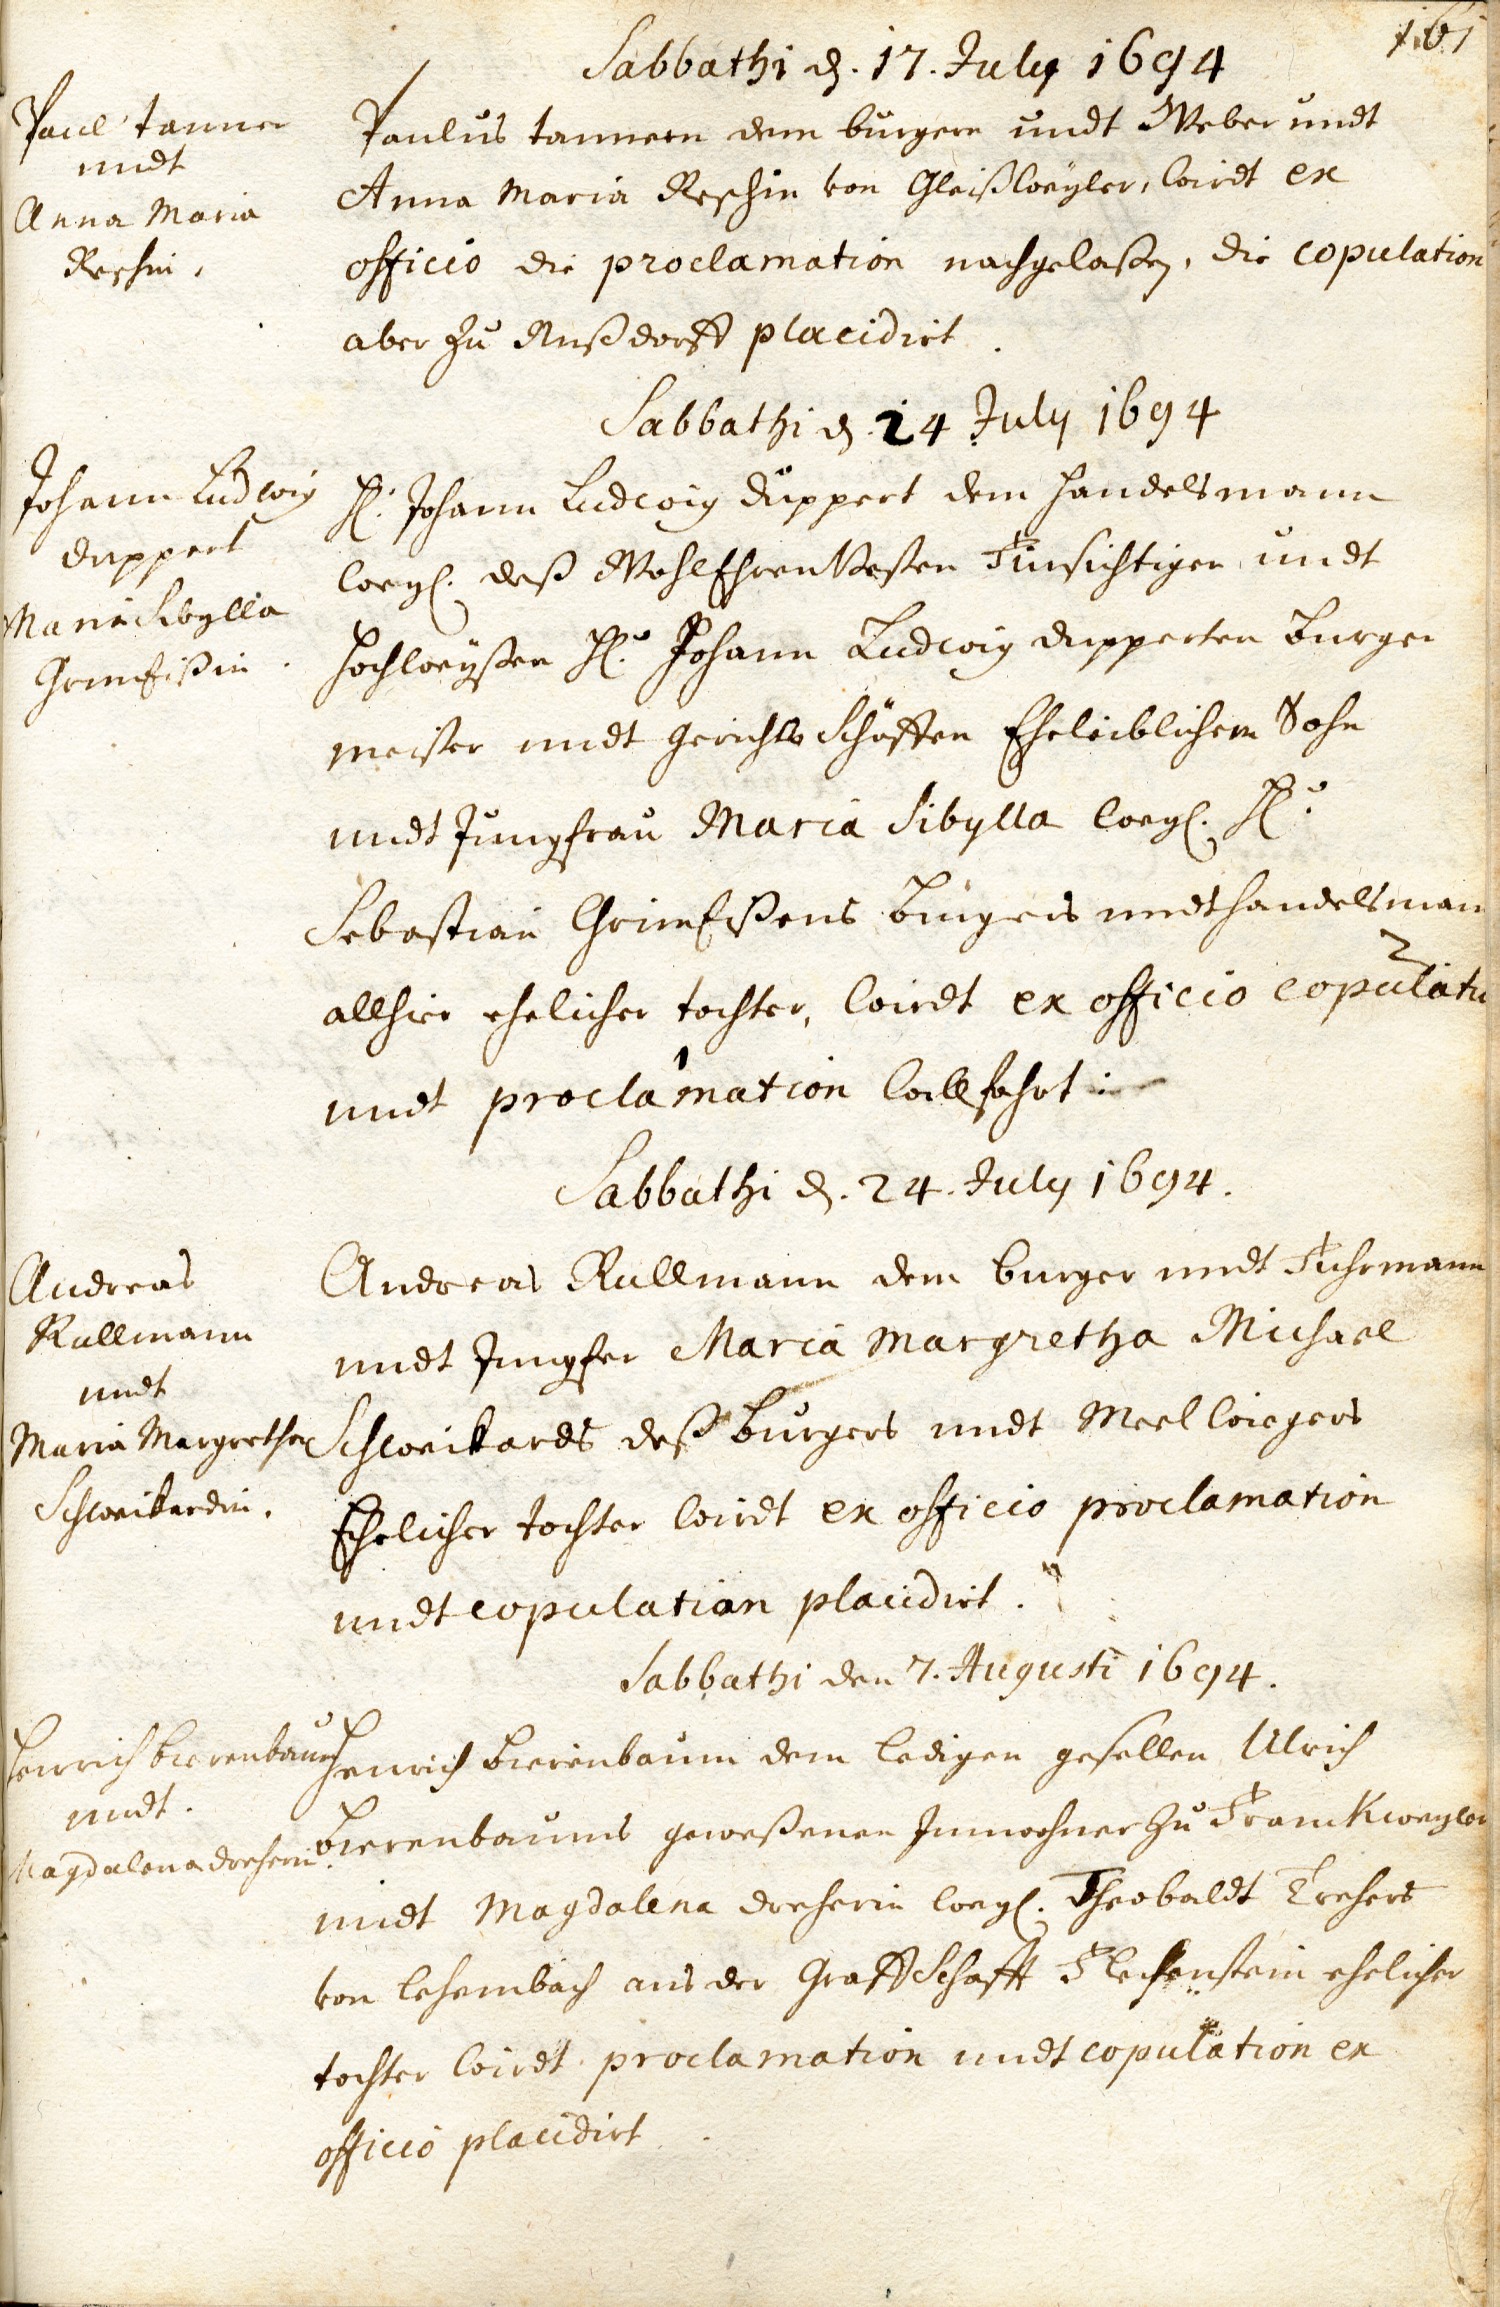 161
Sabbathi d. 17. July 1694
Paul tanner
undt
Anna Maria
Reschin.
Paulus tannern dem burgern undt Weber undt
Anna Maria Reschin von Gleißweyler, wirdt ex
officio die proclamation nachgelaßen, die copulation
aber zu Nußdorff placidirt.
Sabbathi d. 24 July 1694
Johann Ludwig
duppert
Maria Sibylla
Grimeißin.
H. Johann Ludwig düppert dem handelsmann
weyl. deß WohlEhrenVesten Fürsichtigen undt
Hochweyßen H. Johann Ludwig dupperten Burger
meister undt gerichts Schöffen Eheleiblichem Sohn
undt Jungfrau Maria Sibylla weyl. H.
Sebastian Grimeißens Burgers undt handelsman
allhier ehelicher tochter, wirdt ex officio copulatio
undt proclamation willfahrt
Sabbathi d. 24. July 1694.
Andreas
Rullmann
undt
Maria Margretha
Schweikardin.
Andreas Rullmann dem burger undt Fuhrmann
undt Jungfer Maria Margretha Michael
Schweikards deß Burgers undt Meelwiegers
Ehelicher tochter wirdt ex officio proclamation
undt copulation placidirt.
Sabbathi den 7. Augusti 1694.
Henrich bierenbaum
undt.
Magdalena dreherin.
Henrich bierenbaum dem ledigen gesellen Ulrich
bierenbaums geweßenen Innwohner zu Franckweyler
undt Magdalena dreherin weyl. Theobaldt Trehers
von lehembach aus der Graffschafft Fleckenstein ehelicher
tochter wirdt proclamation undt copulation ex
officio placidirt.